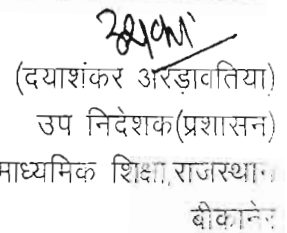 (दयाशंकर अरड़ावतिया)
उप निदेशक(प्रशासन)
माध्यमिक शिक्षा,राजस्थान
बीकानेर